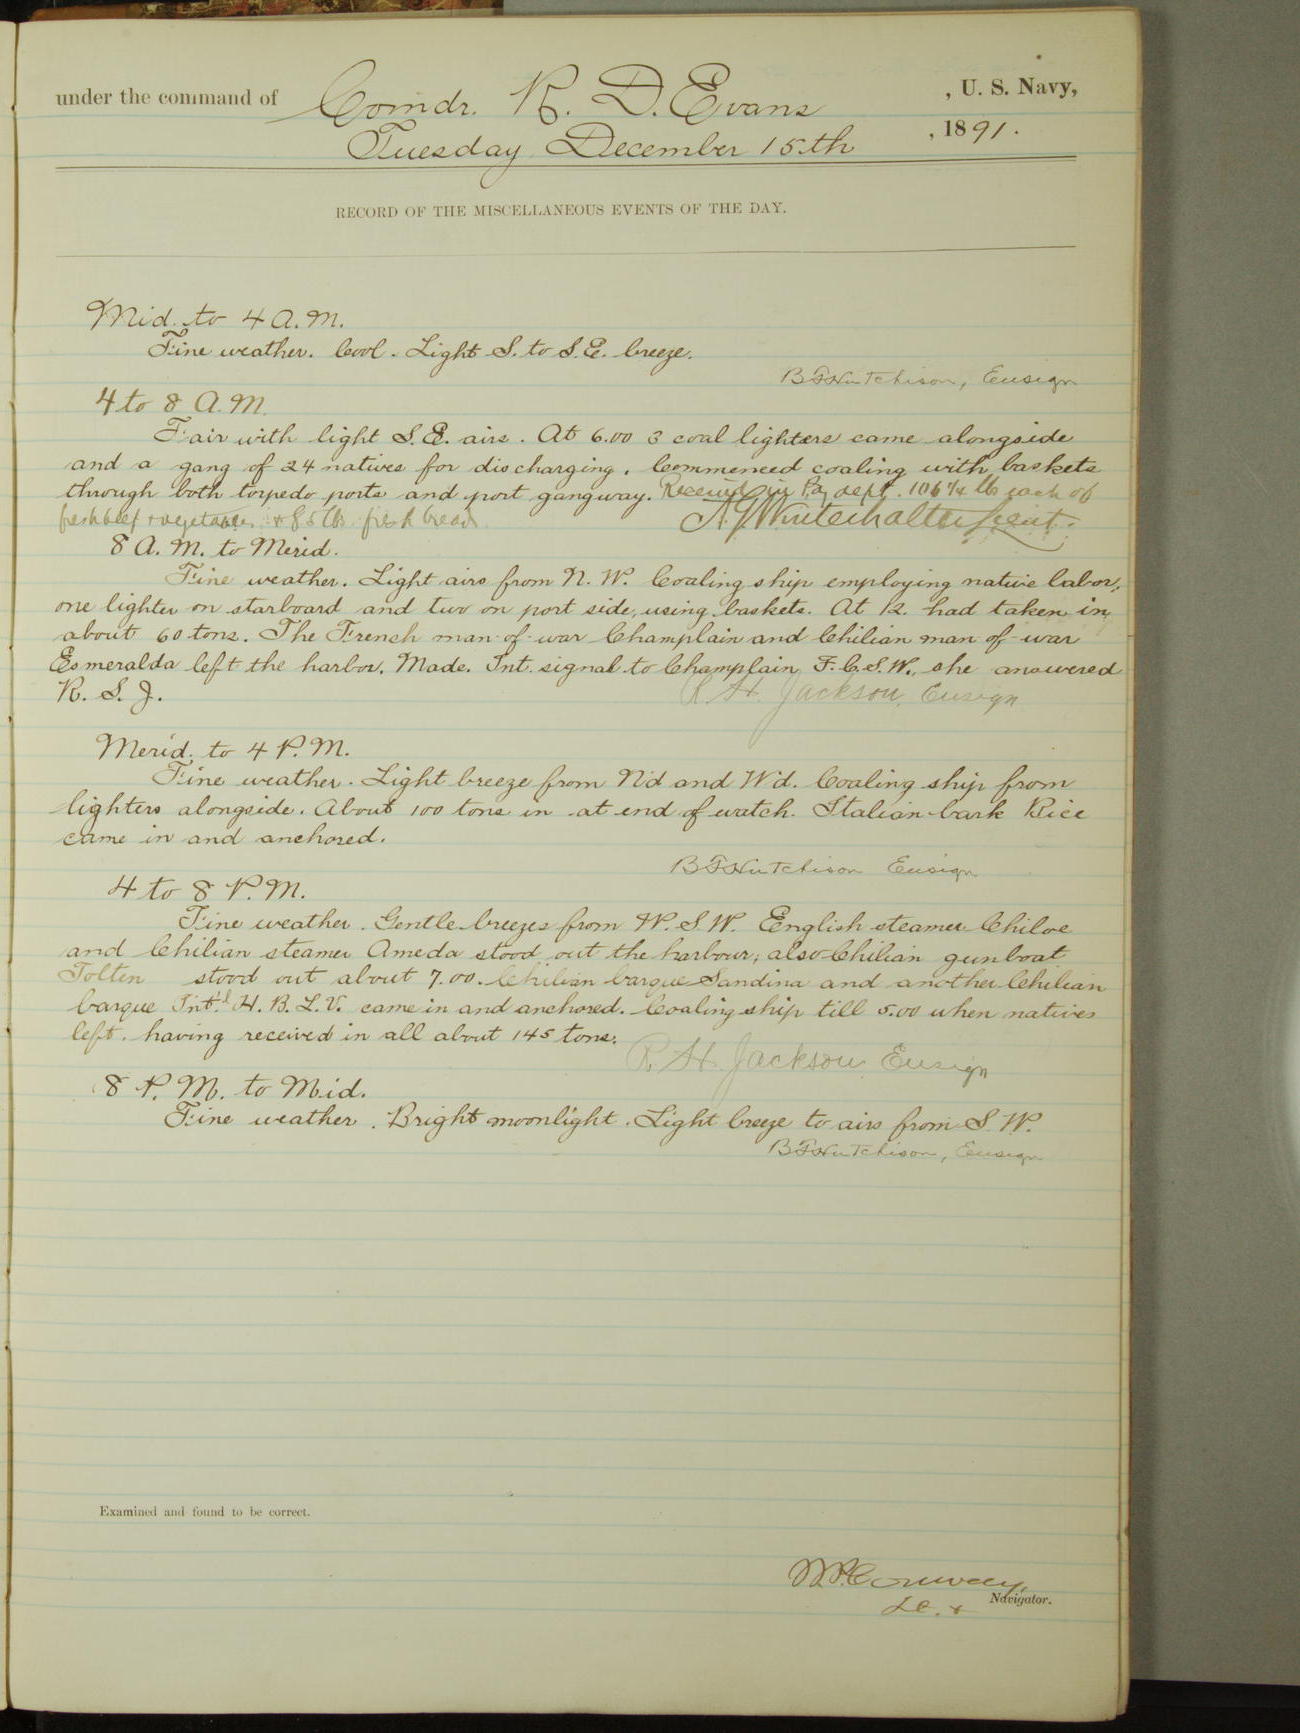 under the command of Comdr. R. D. Evans , U. S. Navy,
Tuesday December 15th , 1891.
RECORD OF THE MISCELLANEOUS EVENTS OF THE DAY.
Mid. to 4 A.M.
Fine weather. Cool. Light S. to S.E. breeze.
B F Hutchison, Ensign
4 to 8 A.M.
Fair with light S.E. airs. At 6.00 3 coal lighters came alongside
and a gang of 24 natives for discharging. Commenced coaling with baskets
through both torpedo ports and port gangway. Received in Pay dept. 106 1/4 lbs each of
fresh beef & vegetables & 85 lbs fresh bread.
A G Winterhalter Lieut.
8 A.M. to Merid.
Fine weather. Light airs from N.W. Coaling ship employing native labor,
one lighter on starboard and two on port side, using baskets. At 12. had taken in
about 60 tons. The French man-of-war Champlain and Chilian man-of-war
Esmeralda left the harbor. Made. Int. signal to Champlain F.C.S.W., she answered
R. S. J.
R. H. Jackson, Ensign
Merid. to 4 P.M.
Fine weather. Light breeze from N'd and W'd. Coaling ship from
lighters alongside. About 100 tons in at end of watch. Italian bark Bice
came in and anchored.
B F Hutchison Ensign
4 to 8 P.M.
Fine weather. Gentle breezes from W.S.W. English steamer Chiloe
and Chilian steamer Ameda stood out the harbour; also Chilian gunboat
Tolten stood out about 7.00. Chilian barque Sandina and another Chilian
barque Int'l H.B.L.V. came in and anchored. Coaling ship till 5.00 when natives
left. having received in all about 145 tons.
R. H. Jackson Ensign
8 P.M. to Mid.
Fine weather. Bright moonlight. Light breeze to airs from S.W.
B F Hutchison, Ensign
Examined and found to be correct.
W. P. Conway,
Navigator.